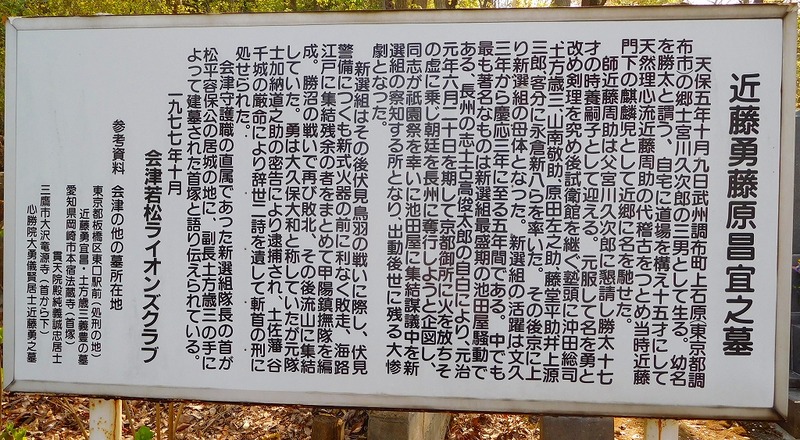 近藤勇藤原昌宜之墓
天保五年十月九日武州調布町上石原(東京都調
布市)の郷士宮川久次郎の三男として生る。幼名
を勝太と謂う、自宅に道場を構え十五才にして
天然理心流近藤周助の代稽古をつとめ当時近藤
門下の麒麟児として近郷に名を馳せた。
師近藤周助は父宮川久次郎に懇請し勝太十七
才の時養嗣子として迎える。元服して名を勇と
改め剣理を究め後試衛館を継ぐ塾頭に沖田総司
土方歳三、山南敬助、原田左之助、藤堂平助、井上源
三郎、客分に永倉新八らを率いた。その後京に上
り新選組の母体となった。新選組の活躍は文久
三年から慶応三年に至る五年間である。中でも
最も著名なものは新選組最盛期の池田屋騒動で
ある、長州の志士古高俊太郎の自白により、元治
元年六月二十日を期して京都御所に火を放ちそ
の虚に乗じ朝廷を長州に奪行しようと企図し、
同志が祇園祭を幸いに池田屋に集結謀議中を新
選組の察知する所となり、出動後世に残る大惨
劇となった。
新選組はその後伏見鳥羽の戦いに際し、伏見
警備につくも新式火器の前に利なく敗走、海路
江戸に集結残余の者をまとめて甲陽鎮撫隊を編
成。勝沼の戦いで再び敗北、その後流山に集結
していた。勇は大久保大和と称していたが元隊
士加納道之助の密告により逮捕され、土佐藩谷
千城の厳命により辞世二詩を遺して斬首の刑に
処せられた。
会津守護職の直属であった新選組隊長の首が
松平容保公の居城の地に、副長土方歳三の手に
よって建墓された首塚と語り伝えられている。
一九七七年十月
会津若松ライオンズクラブ
参考資料 会津の他の墓所在地
東京都板橋区東口駅前(処刑の地)
近藤勇宜昌・土方歳三義豊の墓
愛知県岡崎市本宿法蔵寺(首塚)
貫天院殿純義誠忠居士
三鷹市大沢竜源寺(首から下)
心勝院大勇儀賢居士近藤勇之墓